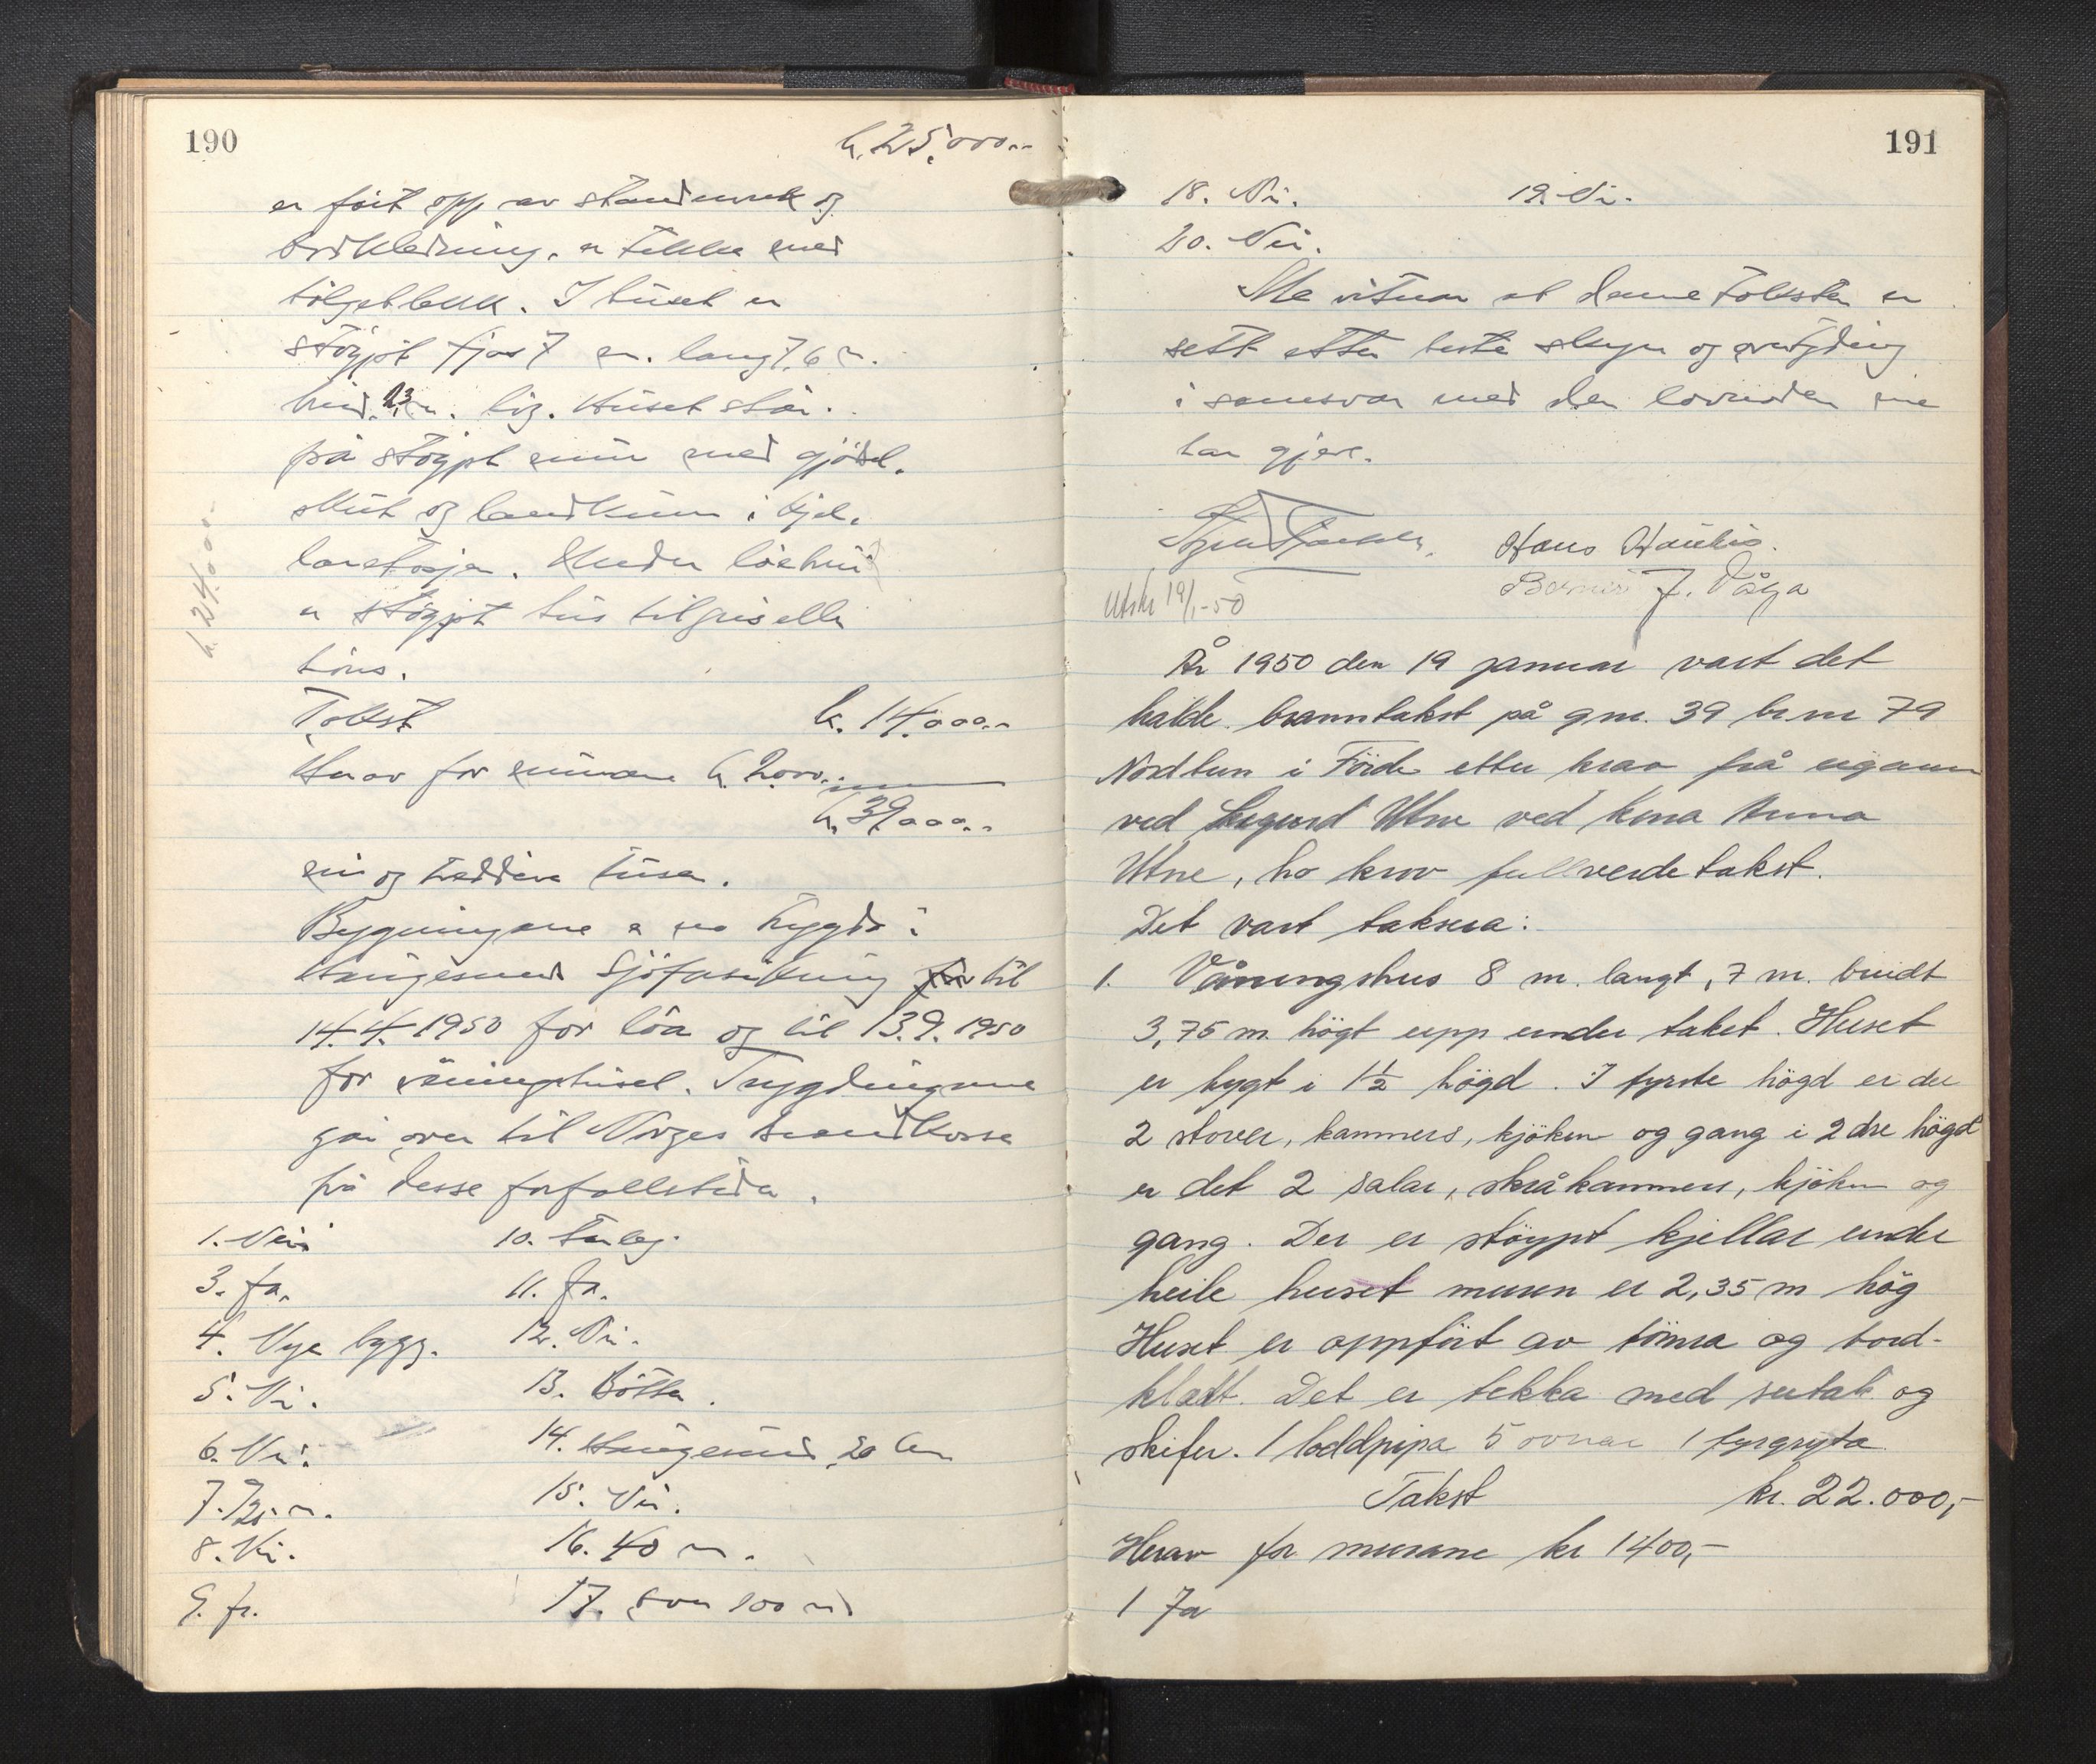 190
k. 25.000.-
er ført opp av standarverk og
bordkledning, er tekka med
bølgeblekk. I huset er
støypt fjos 7 m. langt, 6 m.
breid, 2,3 m. høg. Huset står
på støypt mur med gjødsel.
og landkum i kjel-
laretasjen. Under løebrui
er støypt hus til gris eller
høns.
Takst k. 14.000.-
Herav for murane k. 2000.-
k. 39.000.-
ni og tredive tusen.
Bygningane er no trygda i
Haugesund Sjøforsikring til
14.4.1950 for løa og til 13.9.1950
for våningshuset. Trygdingane
går over til Norges Brandkasse
frå desse forfallstider.
k. 24.000.-
1. Nei 10. Tenleg.
3. Ja. 11. Ja.
4. Nye bygg. 12. Nei.
5. Nei. 13. Bøtter.
6. Nei. 14. Haugesund, 20 km
7. m. 15. Nei.
8. Nei. 16. 40 m.
9. Ja. 17. over 100 m
191
18. Nei. 19. Nei.
20. Nei.
Me vitnar at denne taksten er
sett etter beste skjyn og overtyding
i samsvar med den lovnaden me
har gjeve.
Hans
J. Våga
Utskr 19/1-50
År 1950 den 19 januar vart det
halde branntakst på gnr. 39 brnr 79
Nordtun i Förde etter krav frå eigaren
ved Sigurd Utne ved kona Anna
Utne, ho krov fullverde takst.
Det vart taksera:
1. Våningshus 8 m. langt, 7 m. breidt
3,75 m. högt upp under taket. Huset
er bygt i 1½ högd. I fyrste högd er der
2 stover, kammers, kjöken og gang i 2dre högd
er det 2 salar, skråkammers, kjöken og
gang. Der er stöypt kjellar under
heile huset muren er 2,35 m hög
Huset er oppfört av tömra og bord-
kledt. Det er tekka med sutak og
skifer. 1 loddpipa 5 ovnar 1 fyrgryta
Takst kr. 22.000,-
Herav for murane kr 1400,-
1 Ja